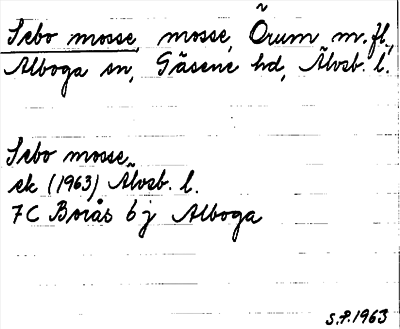 Sebo mosse, mosse, Örum m.fl.,
Alboga sn, Gäsene hd, Älvsb. l.
Sebo mosse
ek (1963) Älvsb. l.
7C Borås 6j Alboga
S.P. 1963